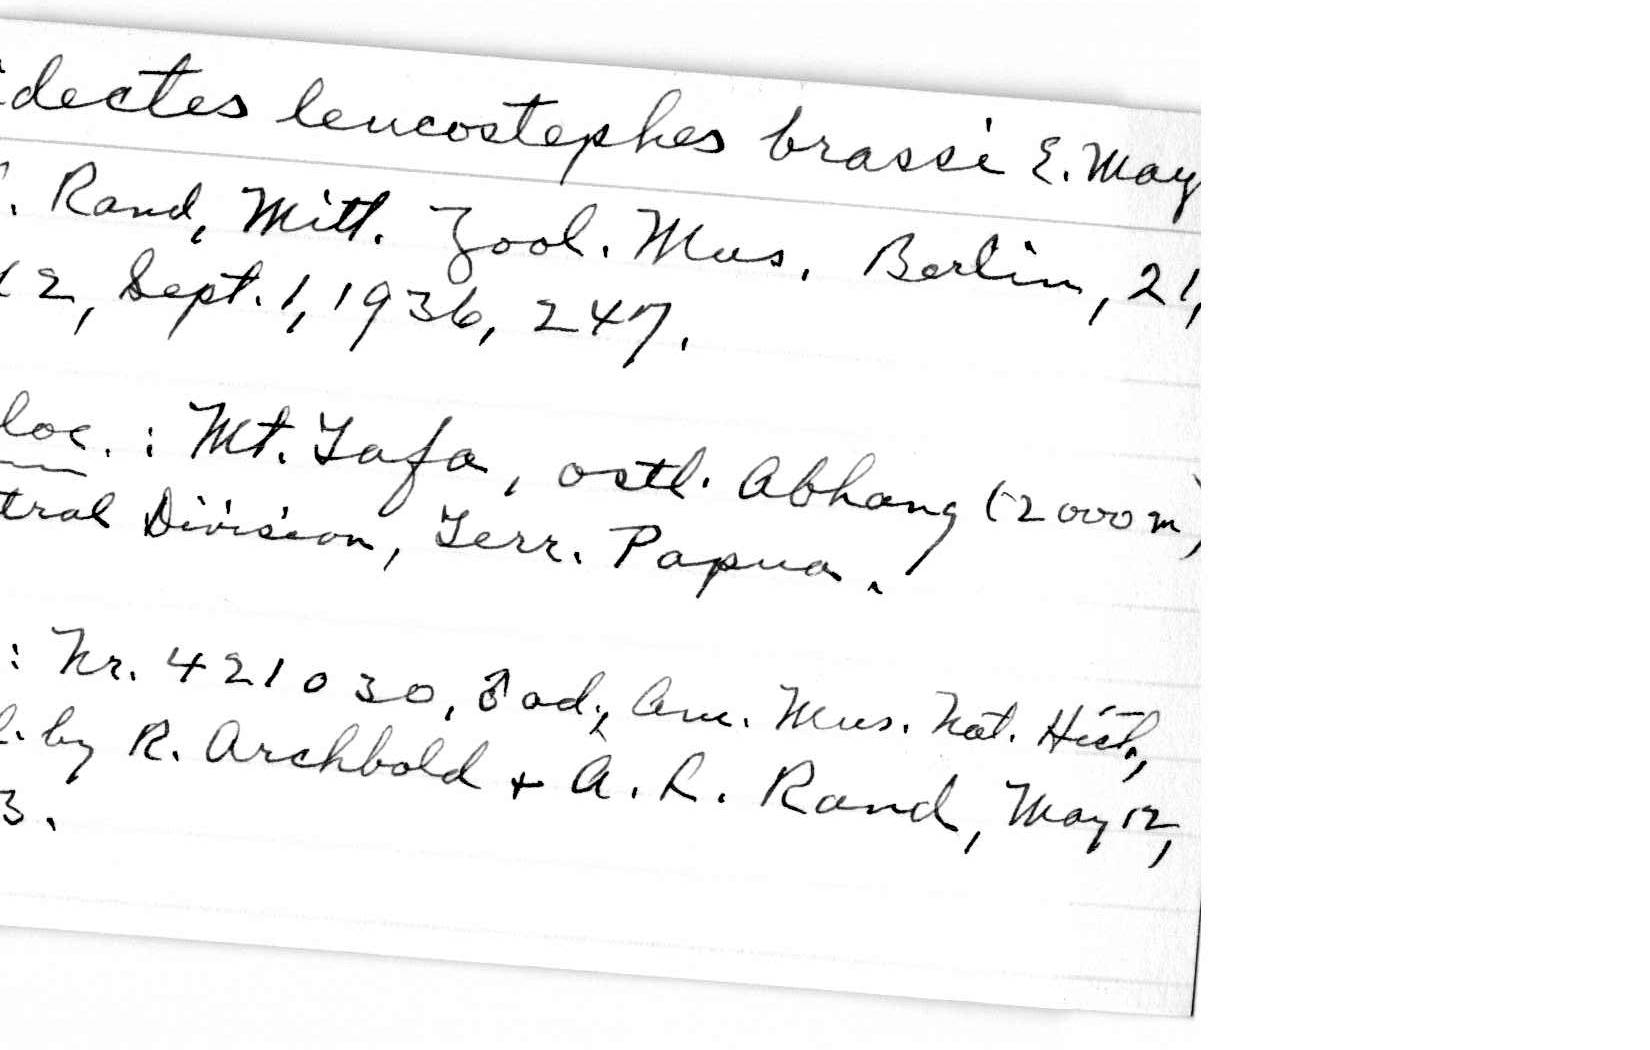 idectes leucostephes brassi E. May
. Rand, Mitt. Zool. Mus. Berlin, 21,
t 2, Sept. 1, 1936, 247.
loc. : Mt. Tafa, ostl. Abhang (2000 m)
tral Division, Terr. Papua.
: Nr. 421030, ♂ ad., Am. Mus. Nat. Hist.,
l. by R. Archbold + A. L. Rand, May 12,
3.